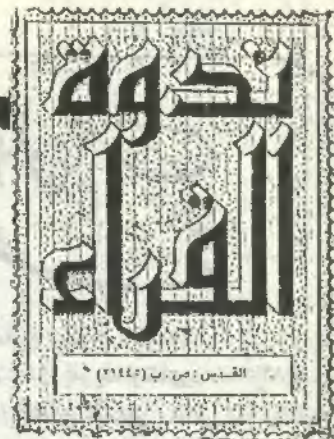 ندوة
القراء
القدس : ص . ب (٢١٤٤٥)